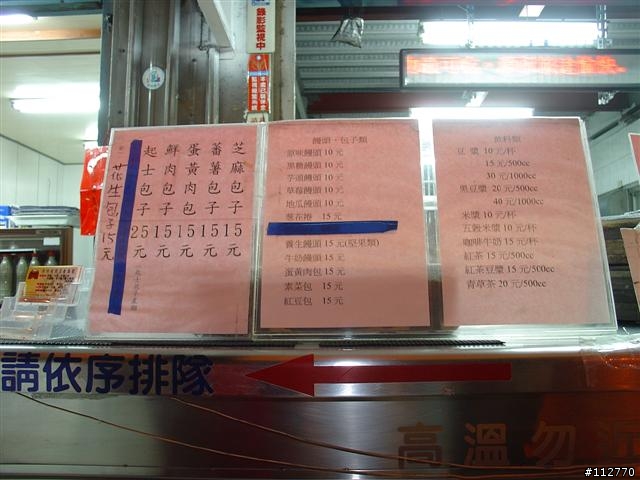 錄影監視中
芝麻包子15元
蕃薯包子15元
蛋黃肉包15元
鮮肉包子15元
起士包子25元
花生包子15元
饅頭、包子類
原味饅頭 10 元
黑糖饅頭 10 元
芋頭饅頭 10 元
草莓饅頭 10 元
地瓜饅頭 10 元
蔥花捲 15 元
養生饅頭 15 元(堅果類)
牛奶饅頭 15 元
蛋黃肉包 15 元
素菜包 15 元
紅豆包 15 元
飲料類
豆漿 10 元/杯
15 元/500cc
30 元/1000cc
黑豆漿 20 元/500cc
40 元/1000cc
米漿 10 元/杯
五穀米漿 10 元/杯
咖啡牛奶 15 元/杯
紅茶 15 元/500cc
紅茶豆漿 15 元/500cc
青草茶 20 元/500cc
請依序排隊
高溫勿近
#112770